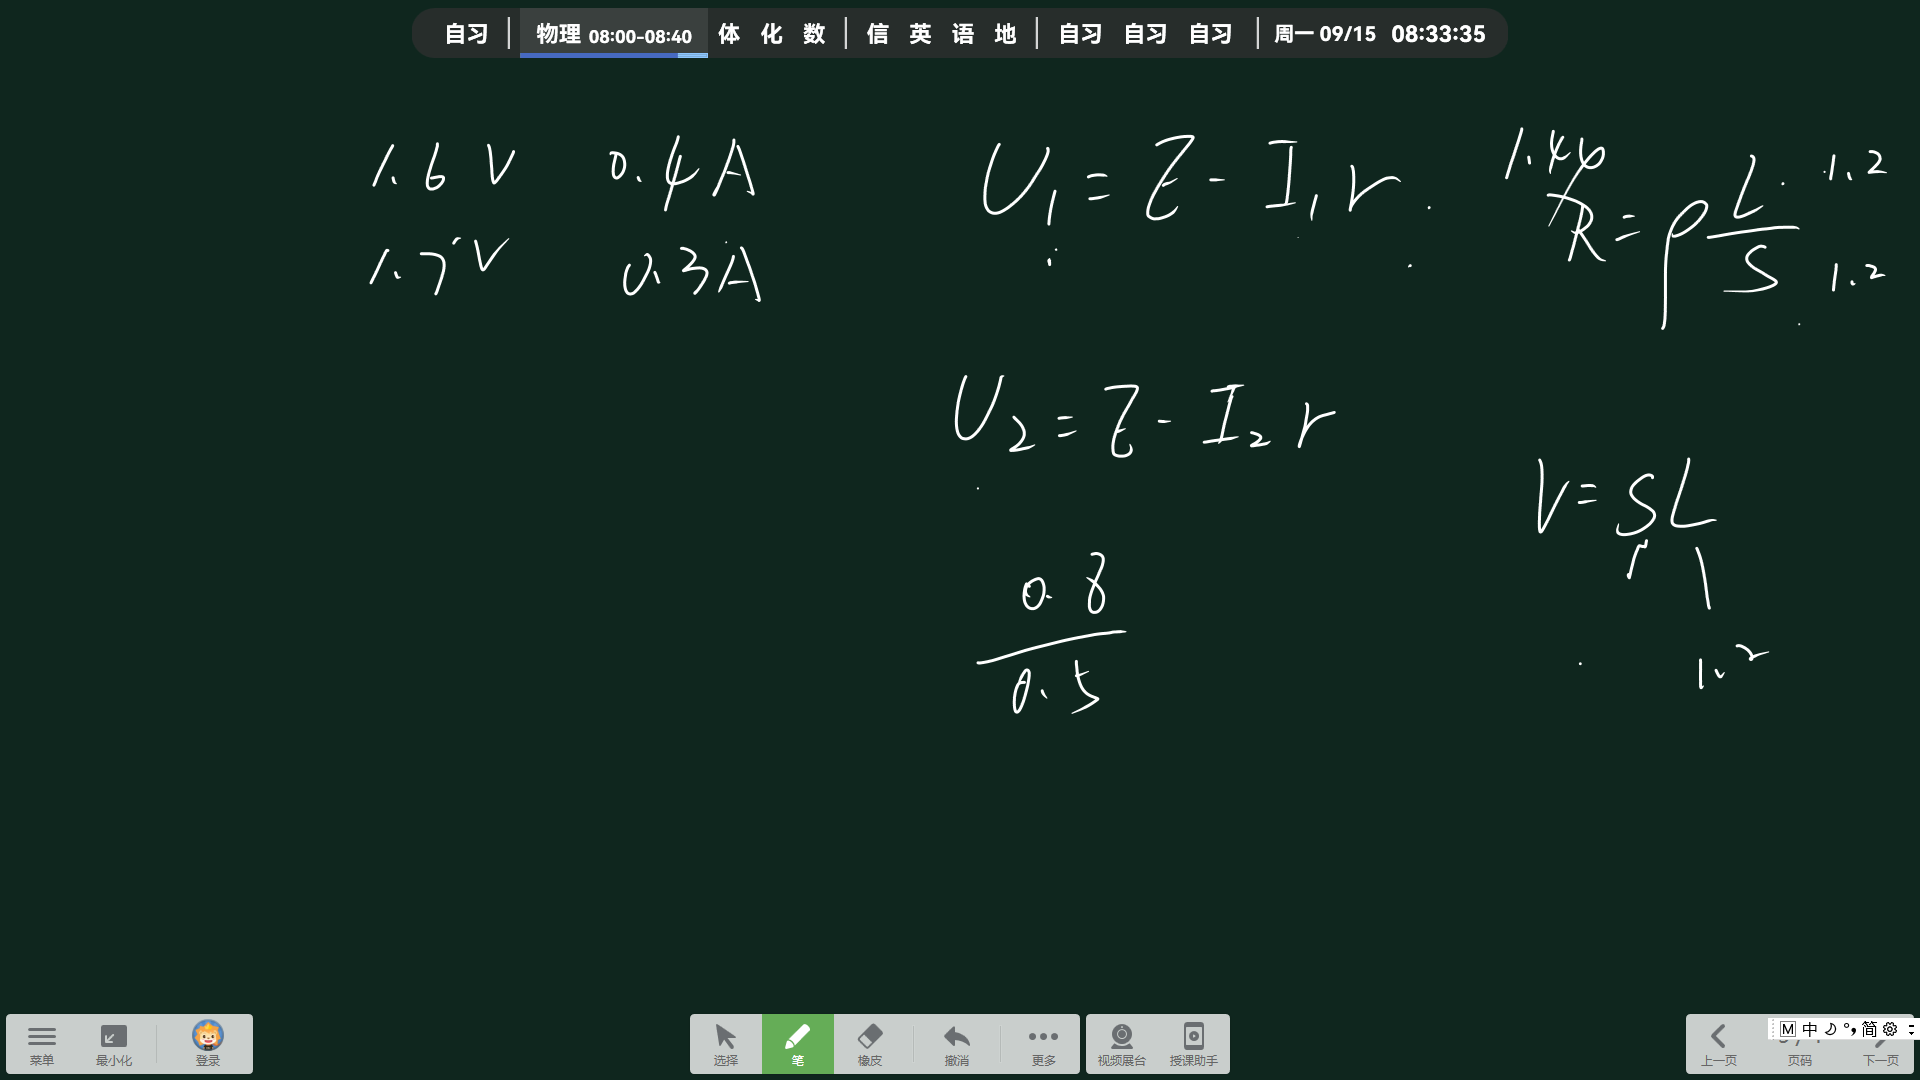 自习 | 物理 08:00-08:40 体 化 数 | 信 英 语 地 | 自习 自习 自习 | 周一 09/15 08:33:35
1.6 V 0.4 A
1.7 V 0.3 A
U₁ = E - I₁r
1.44
R = ρ L/S
1.2
1.2
U₂ = E - I₂r
V = SL
1.2
0.8
0.5
菜单 最小化 登录
选择 笔 橡皮 撤消 更多
视频展台 授课助手
上一页 页码 下一页
M 中 简